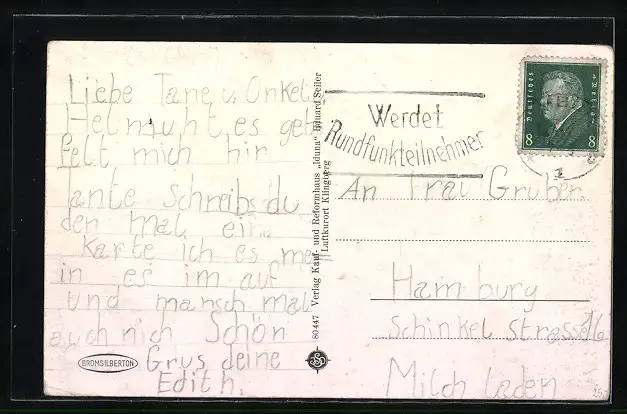 Liebe Tane u. Onkel
Helmuht, es geht
felt mich hir
Tante Schreibs du
den mal eine
Karte ich es
in es im auf
und mansch mal
auch nich Schön
Grus deine
Edith.
BROMSILBERTON
80447 Verlag Kauf- und Reformhaus „Iduna“ Eduard Seiler
Luftkurort Klingberg
Werdet
Rundfunkteilnehmer
Deutsches Reich
8 8
An Frau Gruber.
Hamburg
Schinkel strasse 16
Milch laden